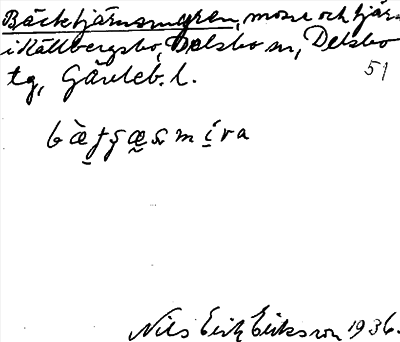 Bäcktjärnsmyren, mosse och tjärn
i Källbergsbo, Delsbo sn, Delsbo
tg, Gävleb. l.
51
Nils Erik Eriksson 1936.